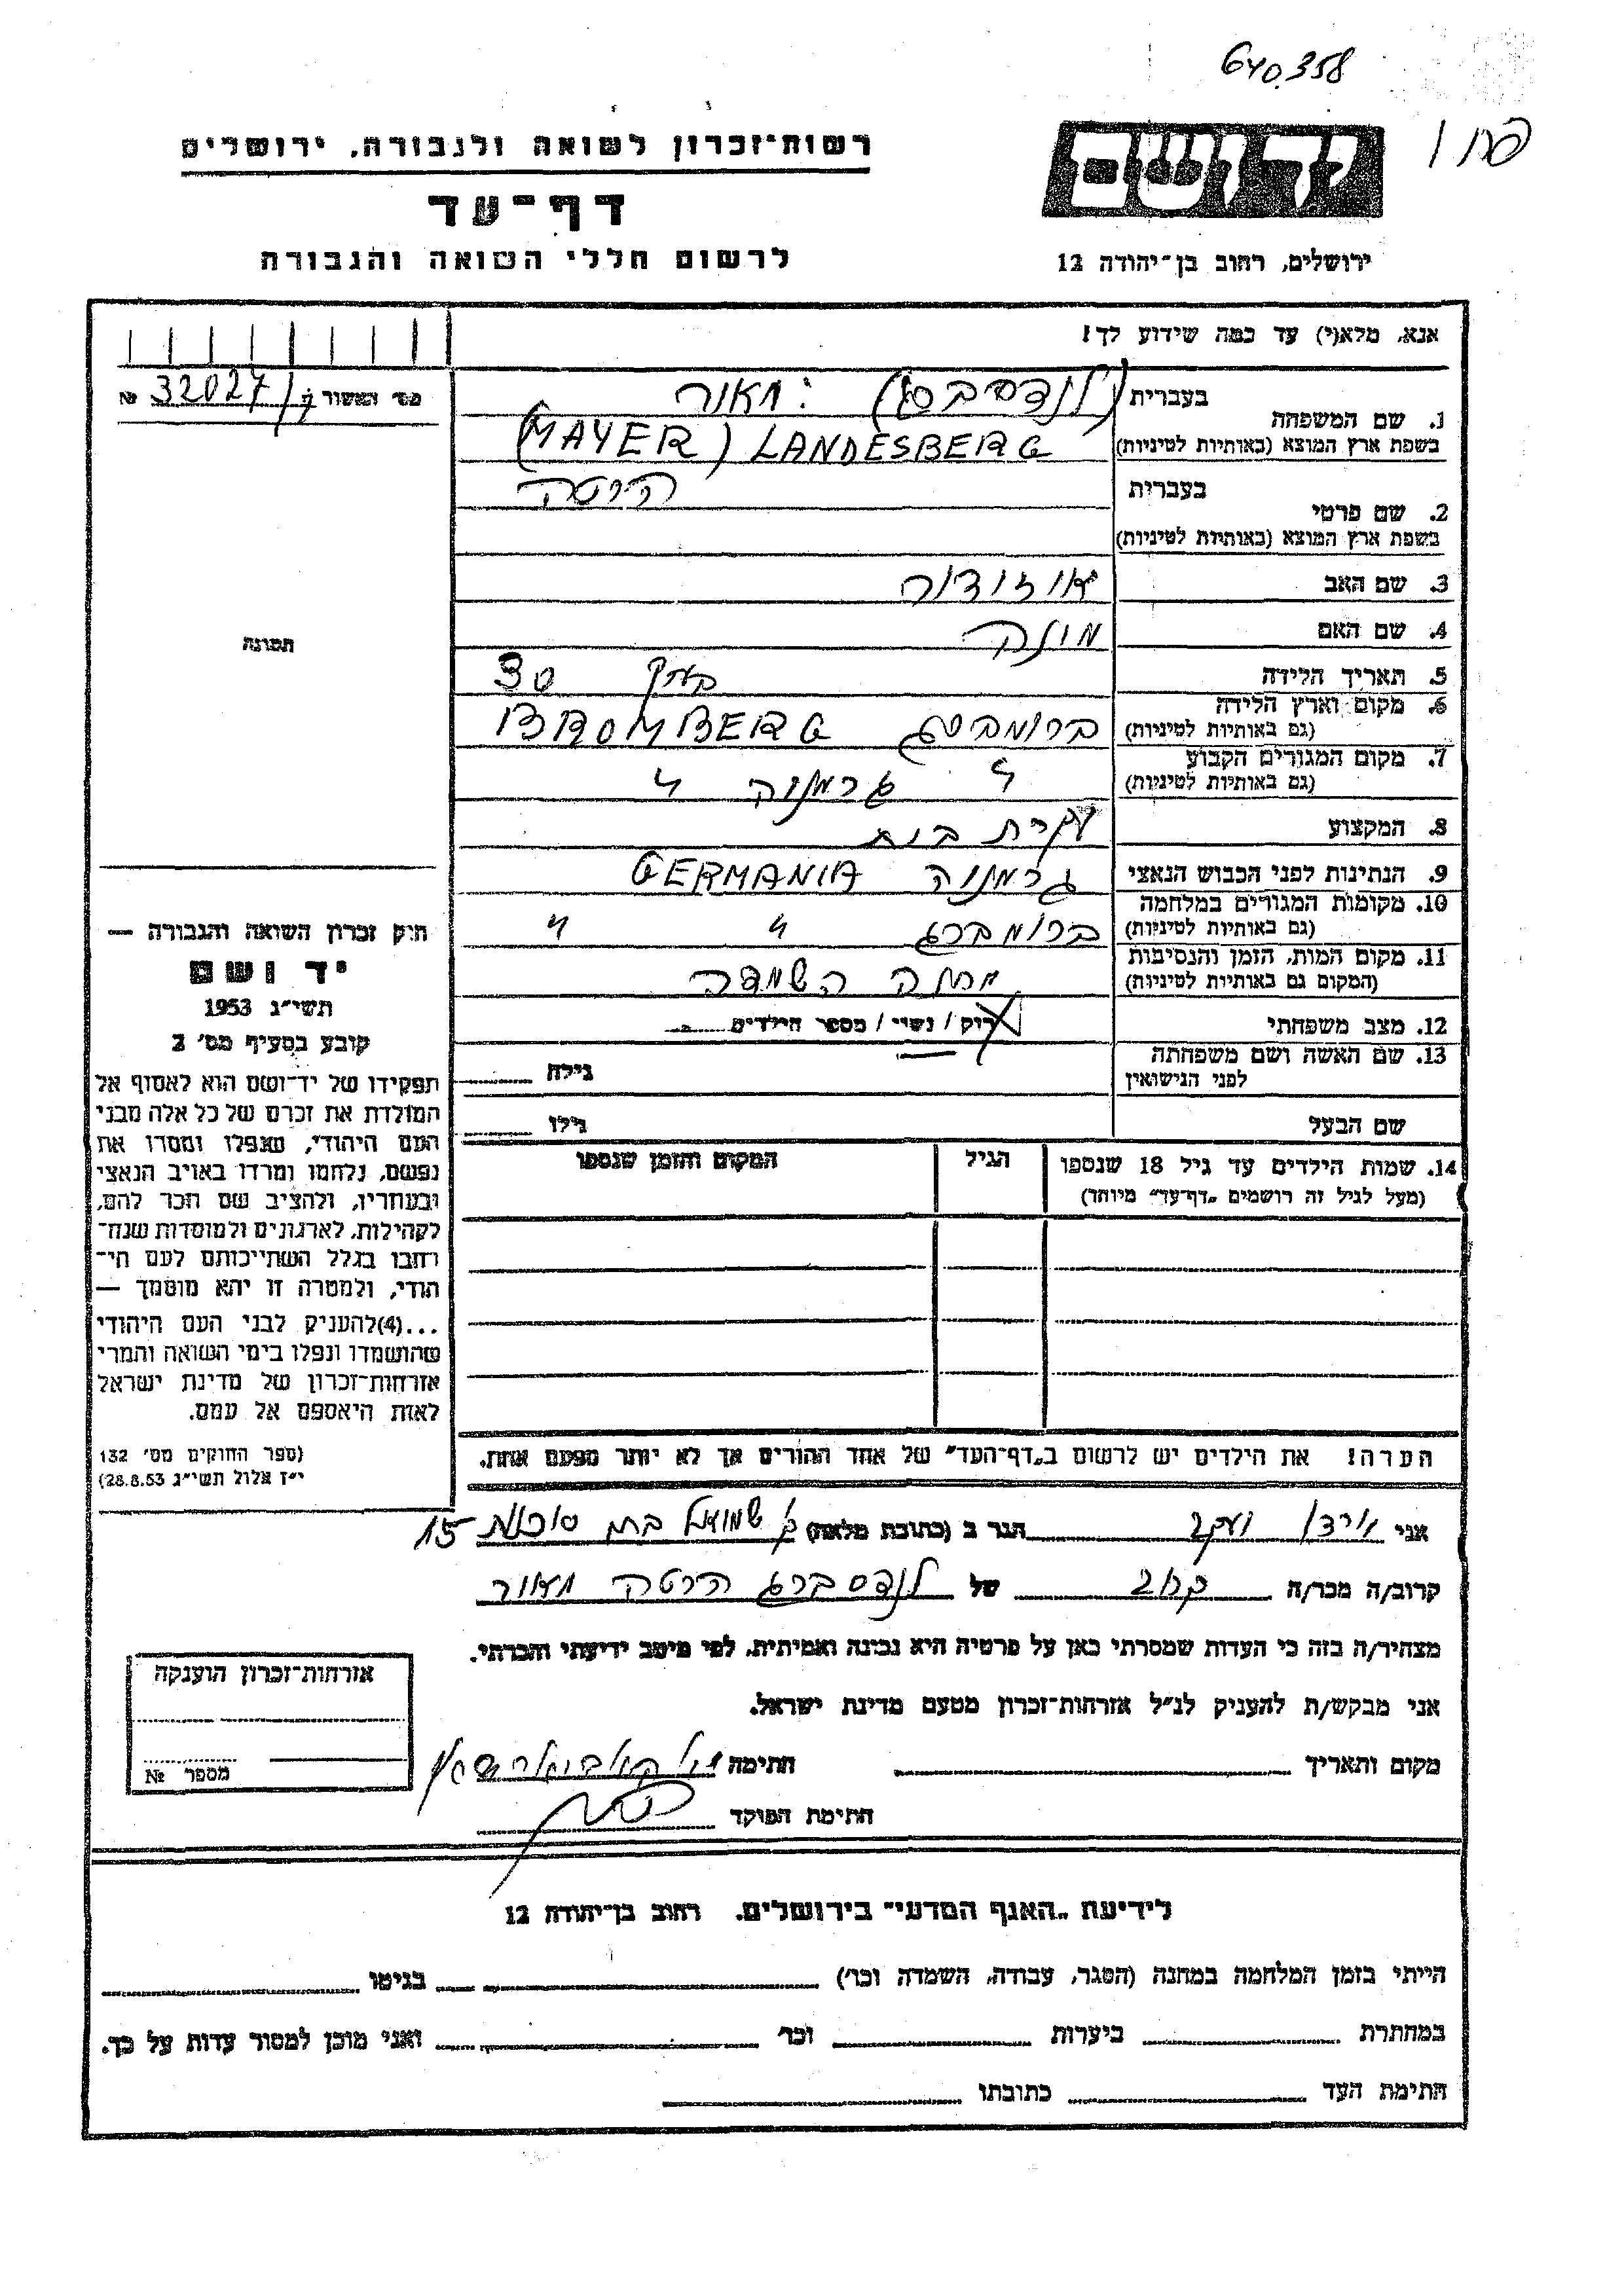 640.358
רשות־זכרון לשואה ולגבורה, ירושלים
דף־עד
לרשום חללי השואה והגבורה
ירושלים, רחוב בן־יהודה 12
אנא, מלא(י) עד כמה שידוע לך!
מס' האשור № 32027
1. שם המשפחה
בעברית (לנדסברג) מאור
בשפת ארץ המוצא (באותיות לטיניות) (MAYER) LANDESBERG
2. שם פרטי
בעברית הרטה
בשפת ארץ המוצא (באותיות לטיניות)
3. שם האב איזידור
4. שם האם
5. תאריך הלידה 30
6. מקום וארץ הלידה
(גם באותיות לטיניות) ברומברג BROMBERG
7. מקום המגורים הקבוע
(גם באותיות לטיניות) " גרמניה "
8. המקצוע עקרת בית
9. הנתינות לפני הכבוש הנאצי גרמניה GERMANIA
10. מקומות המגורים במלחמה
(גם באותיות לטיניות) ברומברג " "
11. מקום המות, הזמן והנסיבות
(המקום גם באותיות לטיניות) מחנה השמדה
12. מצב משפחתי רוק / נשוי / מספר הילדים
13. שם האשה ושם משפחתה
לפני הנישואין גילה
שם הבעל גילו
14. שמות הילדים עד גיל 18 שנספו
(מעל לגיל זה רושמים „דף־עד" מיוחד)
הגיל
המקום והזמן שנספו
הערה! את הילדים יש לרשום ב„דף־העד" של אחד ההורים אך לא יותר מפעם אחת.
תמונה
חוק זכרון השואה והגבורה —
יד ושם
תשי"ג 1953
קובע בסעיף מס' 2
תפקידו של יד־ושם הוא לאסוף אל
המולדת את זכרם של כל אלה מבני
העם היהודי, שנפלו ומסרו את
נפשם, נלחמו ומרדו באויב הנאצי
ובעוזריו, ולהציב שם וזכר להם,
לקהילות, לארגונים ולמוסדות שנח־
רבו בגלל השתייכותם לעם הי־
הודי, ולמטרה זו יהא מוסמך —
...(4) להעניק לבני העם היהודי
שהושמדו ונפלו בימי השואה והמרי
אזרחות־זכרון של מדינת ישראל
לאות היאספם אל עמם.
(ספר החוקים מס' 132
י"ז אלול תשי"ג 28.8.53)
אני יעקב הגר ב (כתובת מלאה) 15
קרוב/ה מכר/ה קרוב של לנדסברג הרטה מאור
מצהיר/ה בזה כי העדות שמסרתי כאן על פרטיה היא נכונה ואמיתית, לפי מיטב ידיעתי והכרתי.
אני מבקש/ת להעניק לנ"ל אזרחות־זכרון מטעם מדינת ישראל.
מקום ותאריך חתימה
חתימת הפוקד
אזרחות־זכרון הוענקה
מספר №
לידיעת „האגף המדעי" בירושלים. רחוב בן־יהודה 12
הייתי בזמן המלחמה במחנה (הסגר, עבודה, השמדה וכו') בגיטו
במחתרת ביערות וכו' ואני מוכן למסור עדות על כך.
חתימת העד כתובתו